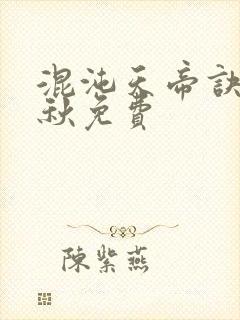 混沌天帝訣
秋免費
陳紫燕